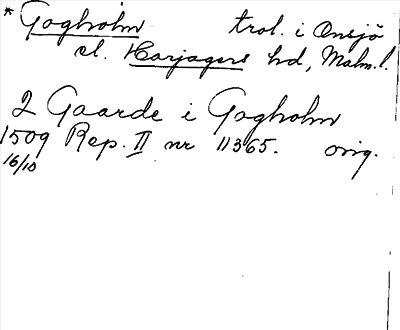 * Gogholm trol. i Onsjö
el. Harjagers hd, Malm.l.
2 Gaarde i Gogholm
1509 Rep. II nr 11365. orig.
16/10